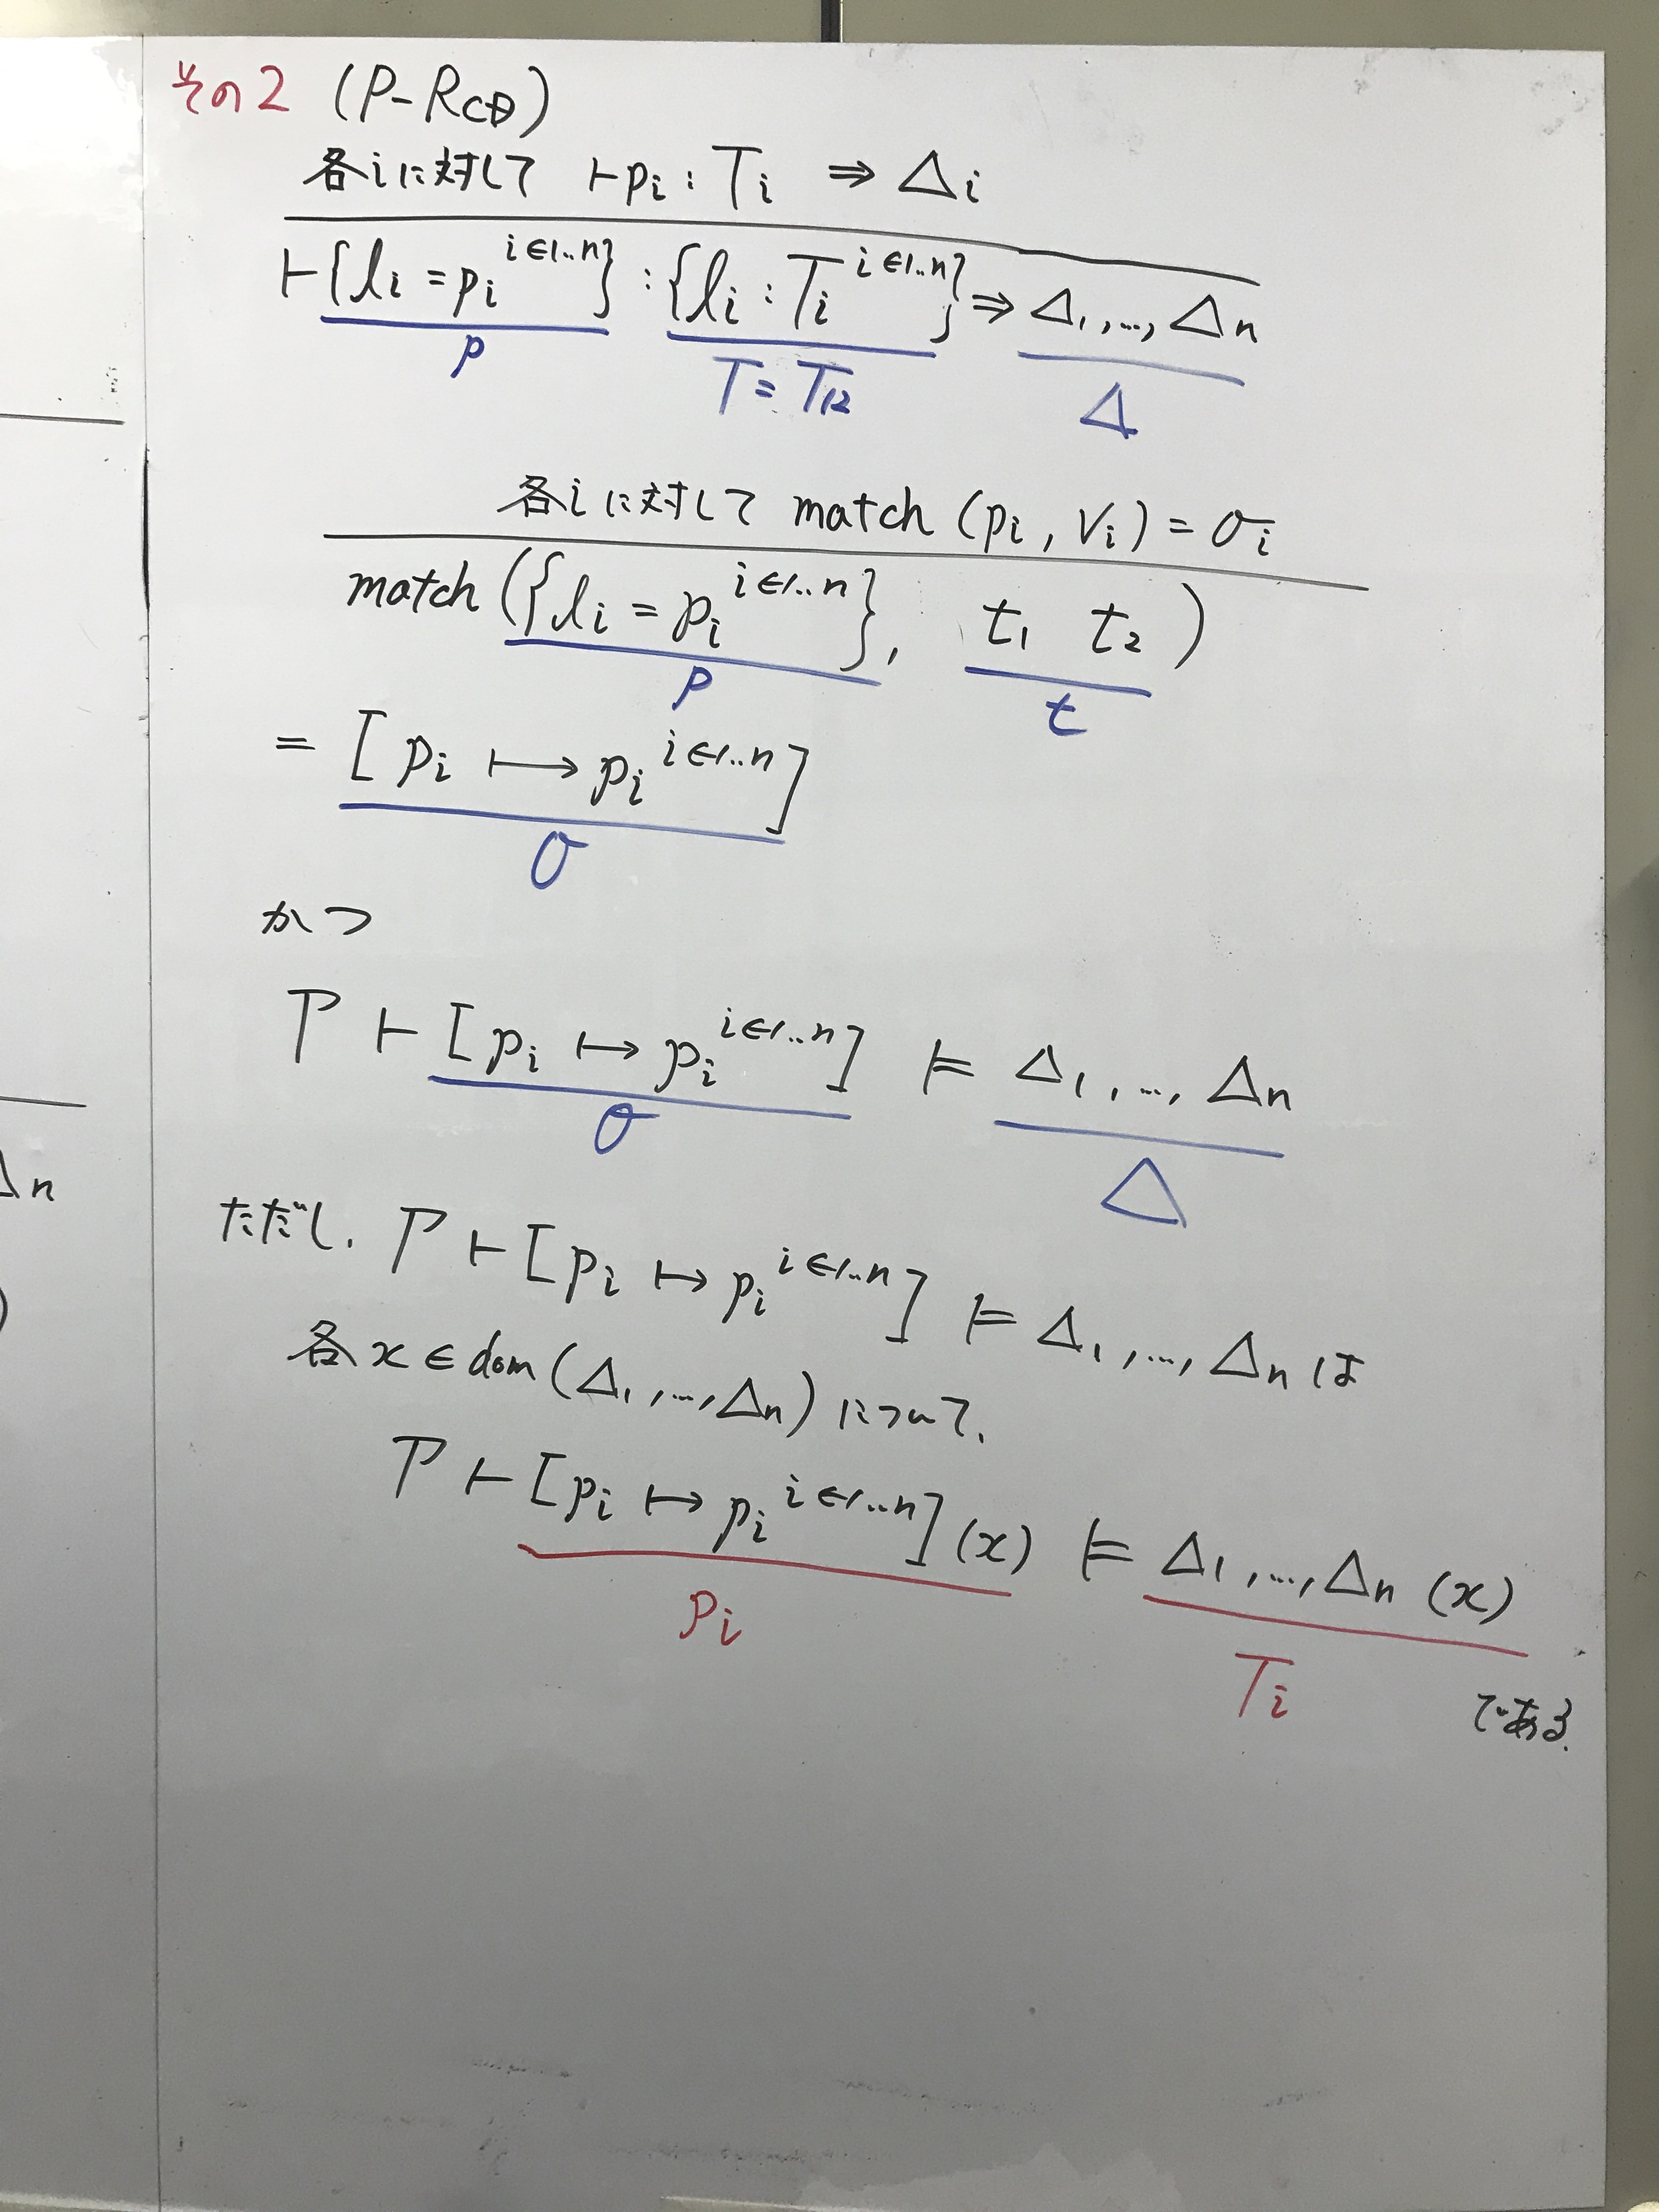 その2 (P-RCD)
各iに対して ⊢pi : Ti ⇒ Δi
⊢{li = pi i∈1..n} : {li : Ti i∈1..n} ⇒ Δ1, ..., Δn
p T = T12 Δ
各iに対して match (pi, vi) = σi
match ({li = pi i∈1..n}, t1 t2)
p t
= [pi ↦ pi i∈1..n]
σ
かつ
Γ ⊢ [pi ↦ pi i∈1..n] ⊨ Δ1, ..., Δn
σ Δ
ただし、Γ ⊢ [pi ↦ pi i∈1..n] ⊨ Δ1, ..., Δnは
各x ∈ dom (Δ1, ..., Δn) について、
Γ ⊢ [pi ↦ pi i∈1..n] (x) ⊨ Δ1, ..., Δn (x)
pi Ti
である.
Δn
)